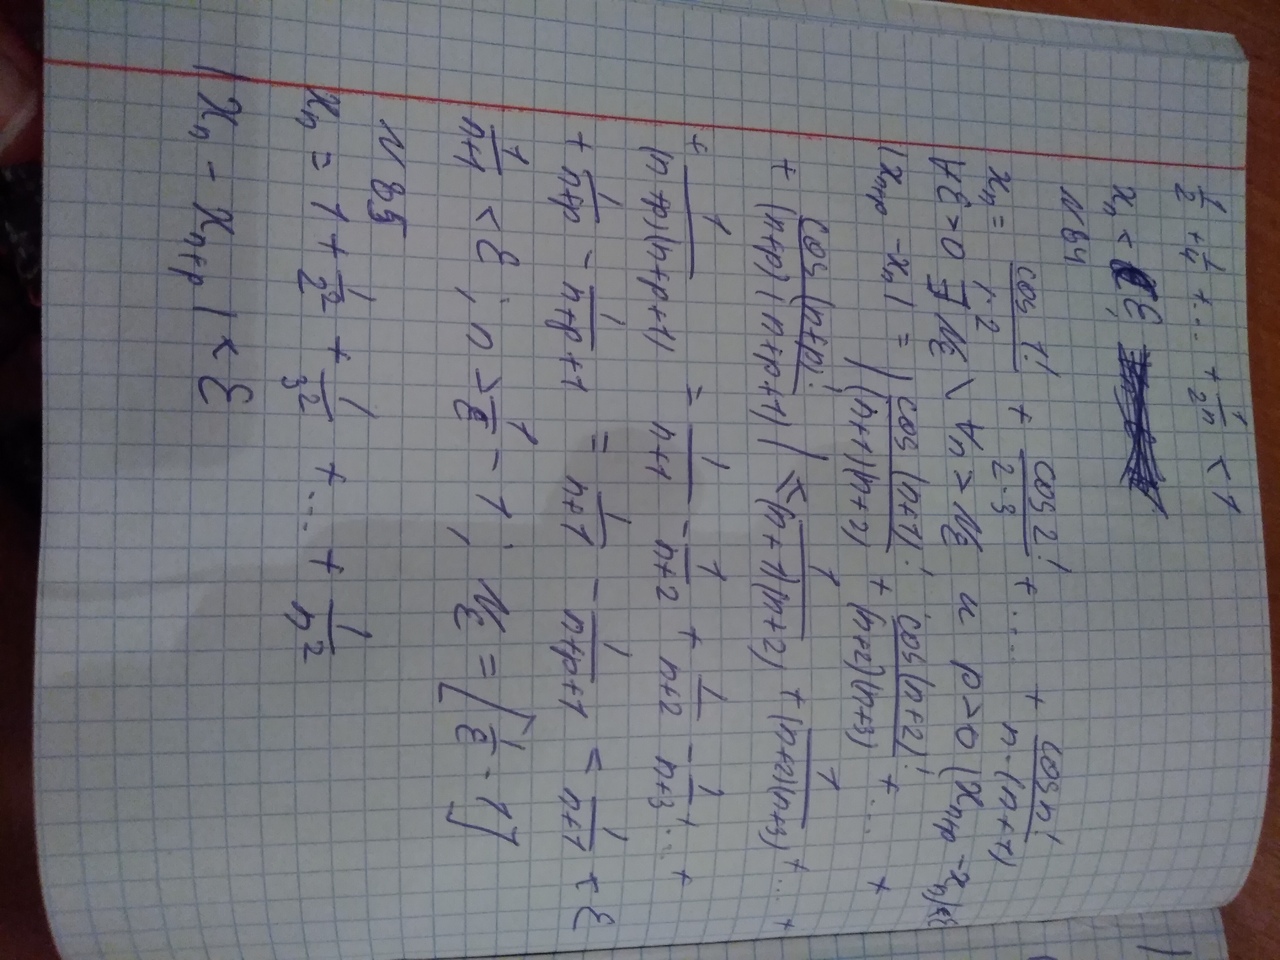 1/2 + 1/4 + ... + 1/2n < 1
xn < ε,
N 84
xn = cos 1!/1·2 + cos 2!/2·3 + .... + cos n!/n·(n+1)
∀ε>0 ∃ Nε \ ∀n > Nε и p>0 |xn+p - xn|<ε
|xn+p - xn| = |cos(n+1)!/(n+1)(n+2) + cos(n+2)!/(n+2)(n+3) + .... +
+ cos(n+p)!/(n+p)(n+p+1)| ≤ 1/(n+1)(n+2) + 1/(n+2)(n+3) + ... +
+ 1/(n+p)(n+p+1) = 1/n+1 - 1/n+2 + 1/n+2 - 1/n+3 ... +
+ 1/n+p - 1/n+p+1 = 1/n+1 - 1/n+p+1 < 1/n+1 < ε
1/n+1 < ε ; n > 1/ε - 1 ; Nε = [1/ε - 1]
N 85
xn = 1 + 1/2² + 1/3² + ... + 1/n²
|xn - xn+p| < ε